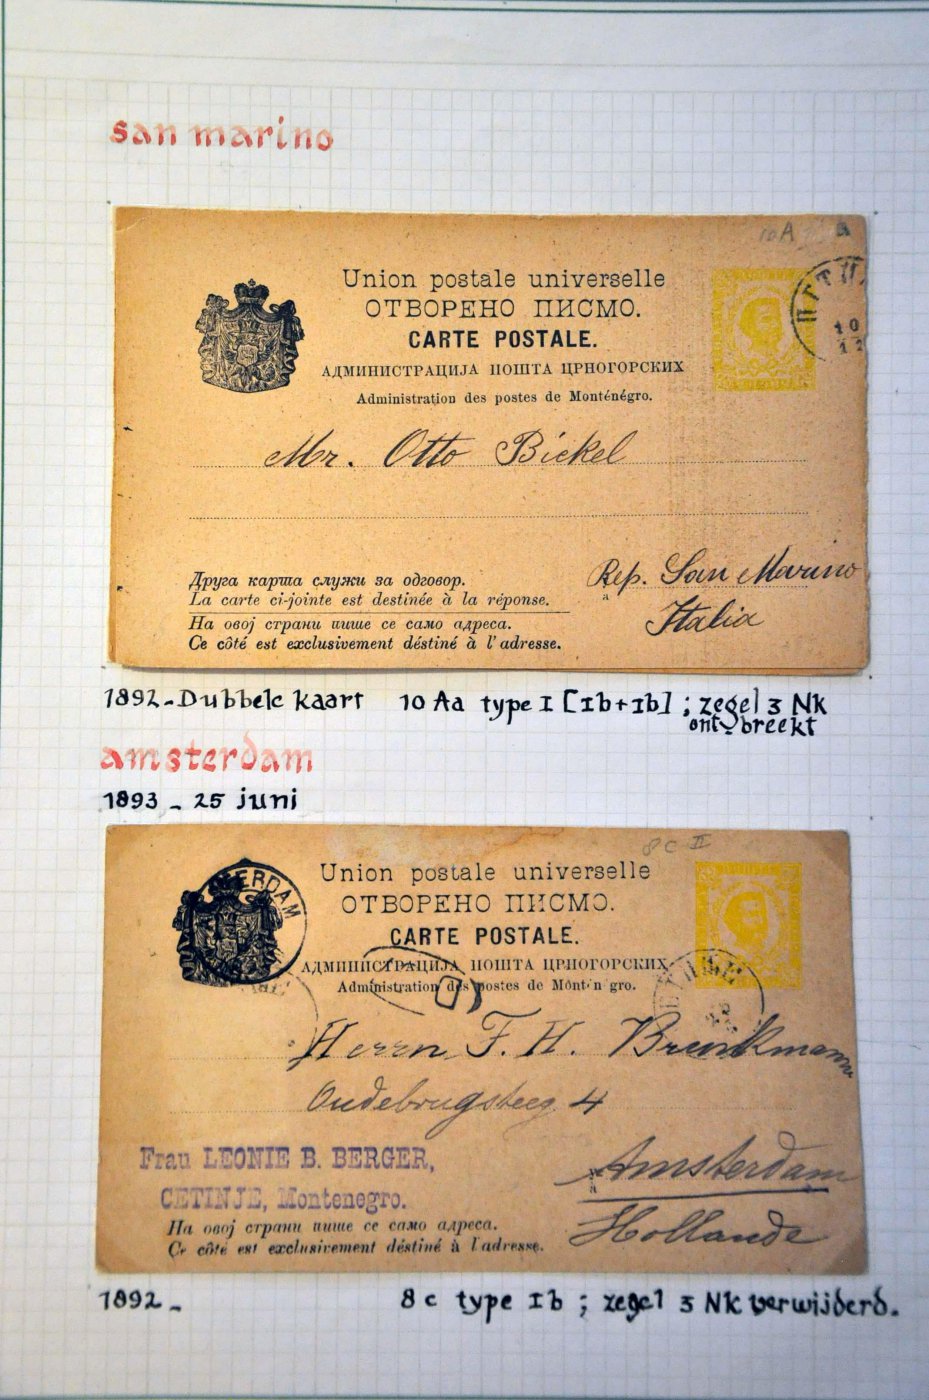 san marino
10 A
Union postale universelle
ОТВОРЕНО ПИСМО.
CARTE POSTALE.
АДМИНИСТРАЦИЈА ПОШТА ЦРНОГОРСКИХ
Administration des postes de Monténégro.
Mr. Otto Bickel
Друга карта служи за одговор.
La carte ci-jointe est destinée à la réponse.
На овој страни пише се само адреса.
Ce côté est exclusivement déstiné à l'adresse.
Rep. San Marino
à
Italia
1892-Dubbele kaart 10 Aa type I [Ib+Ib] ; zegel 3 Nk
ontbreekt
amsterdam
1893 - 25 juni
8 C II
Union postale universelle
ОТВОРЕНО ПИСМО.
CARTE POSTALE.
АДМИНИСТРАЦИЈА ПОШТА ЦРНОГОРСКИХ
Administration des postes de Monténégro.
Herrn F. H. Brunkmann
Oudebrugsteeg 4
Frau LEONIE B. BERGER,
CETINJE, Montenegro.
Amsterdam
à
Hollande
На овој страни пише се само адреса.
Ce côté est exclusivement déstiné à l'adresse.
1892 - 8 c type Ib ; zegel 3 Nk verwijderd.